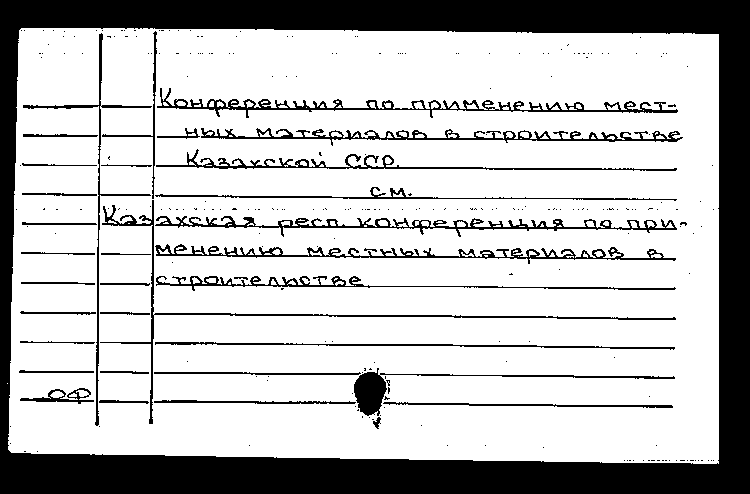 Конференция по применению мест-
ных материалов в строительстве
Казахской ССР.
см.
Казахская респ. конференция по при-
менению местных материалов в
строительстве
ОФ